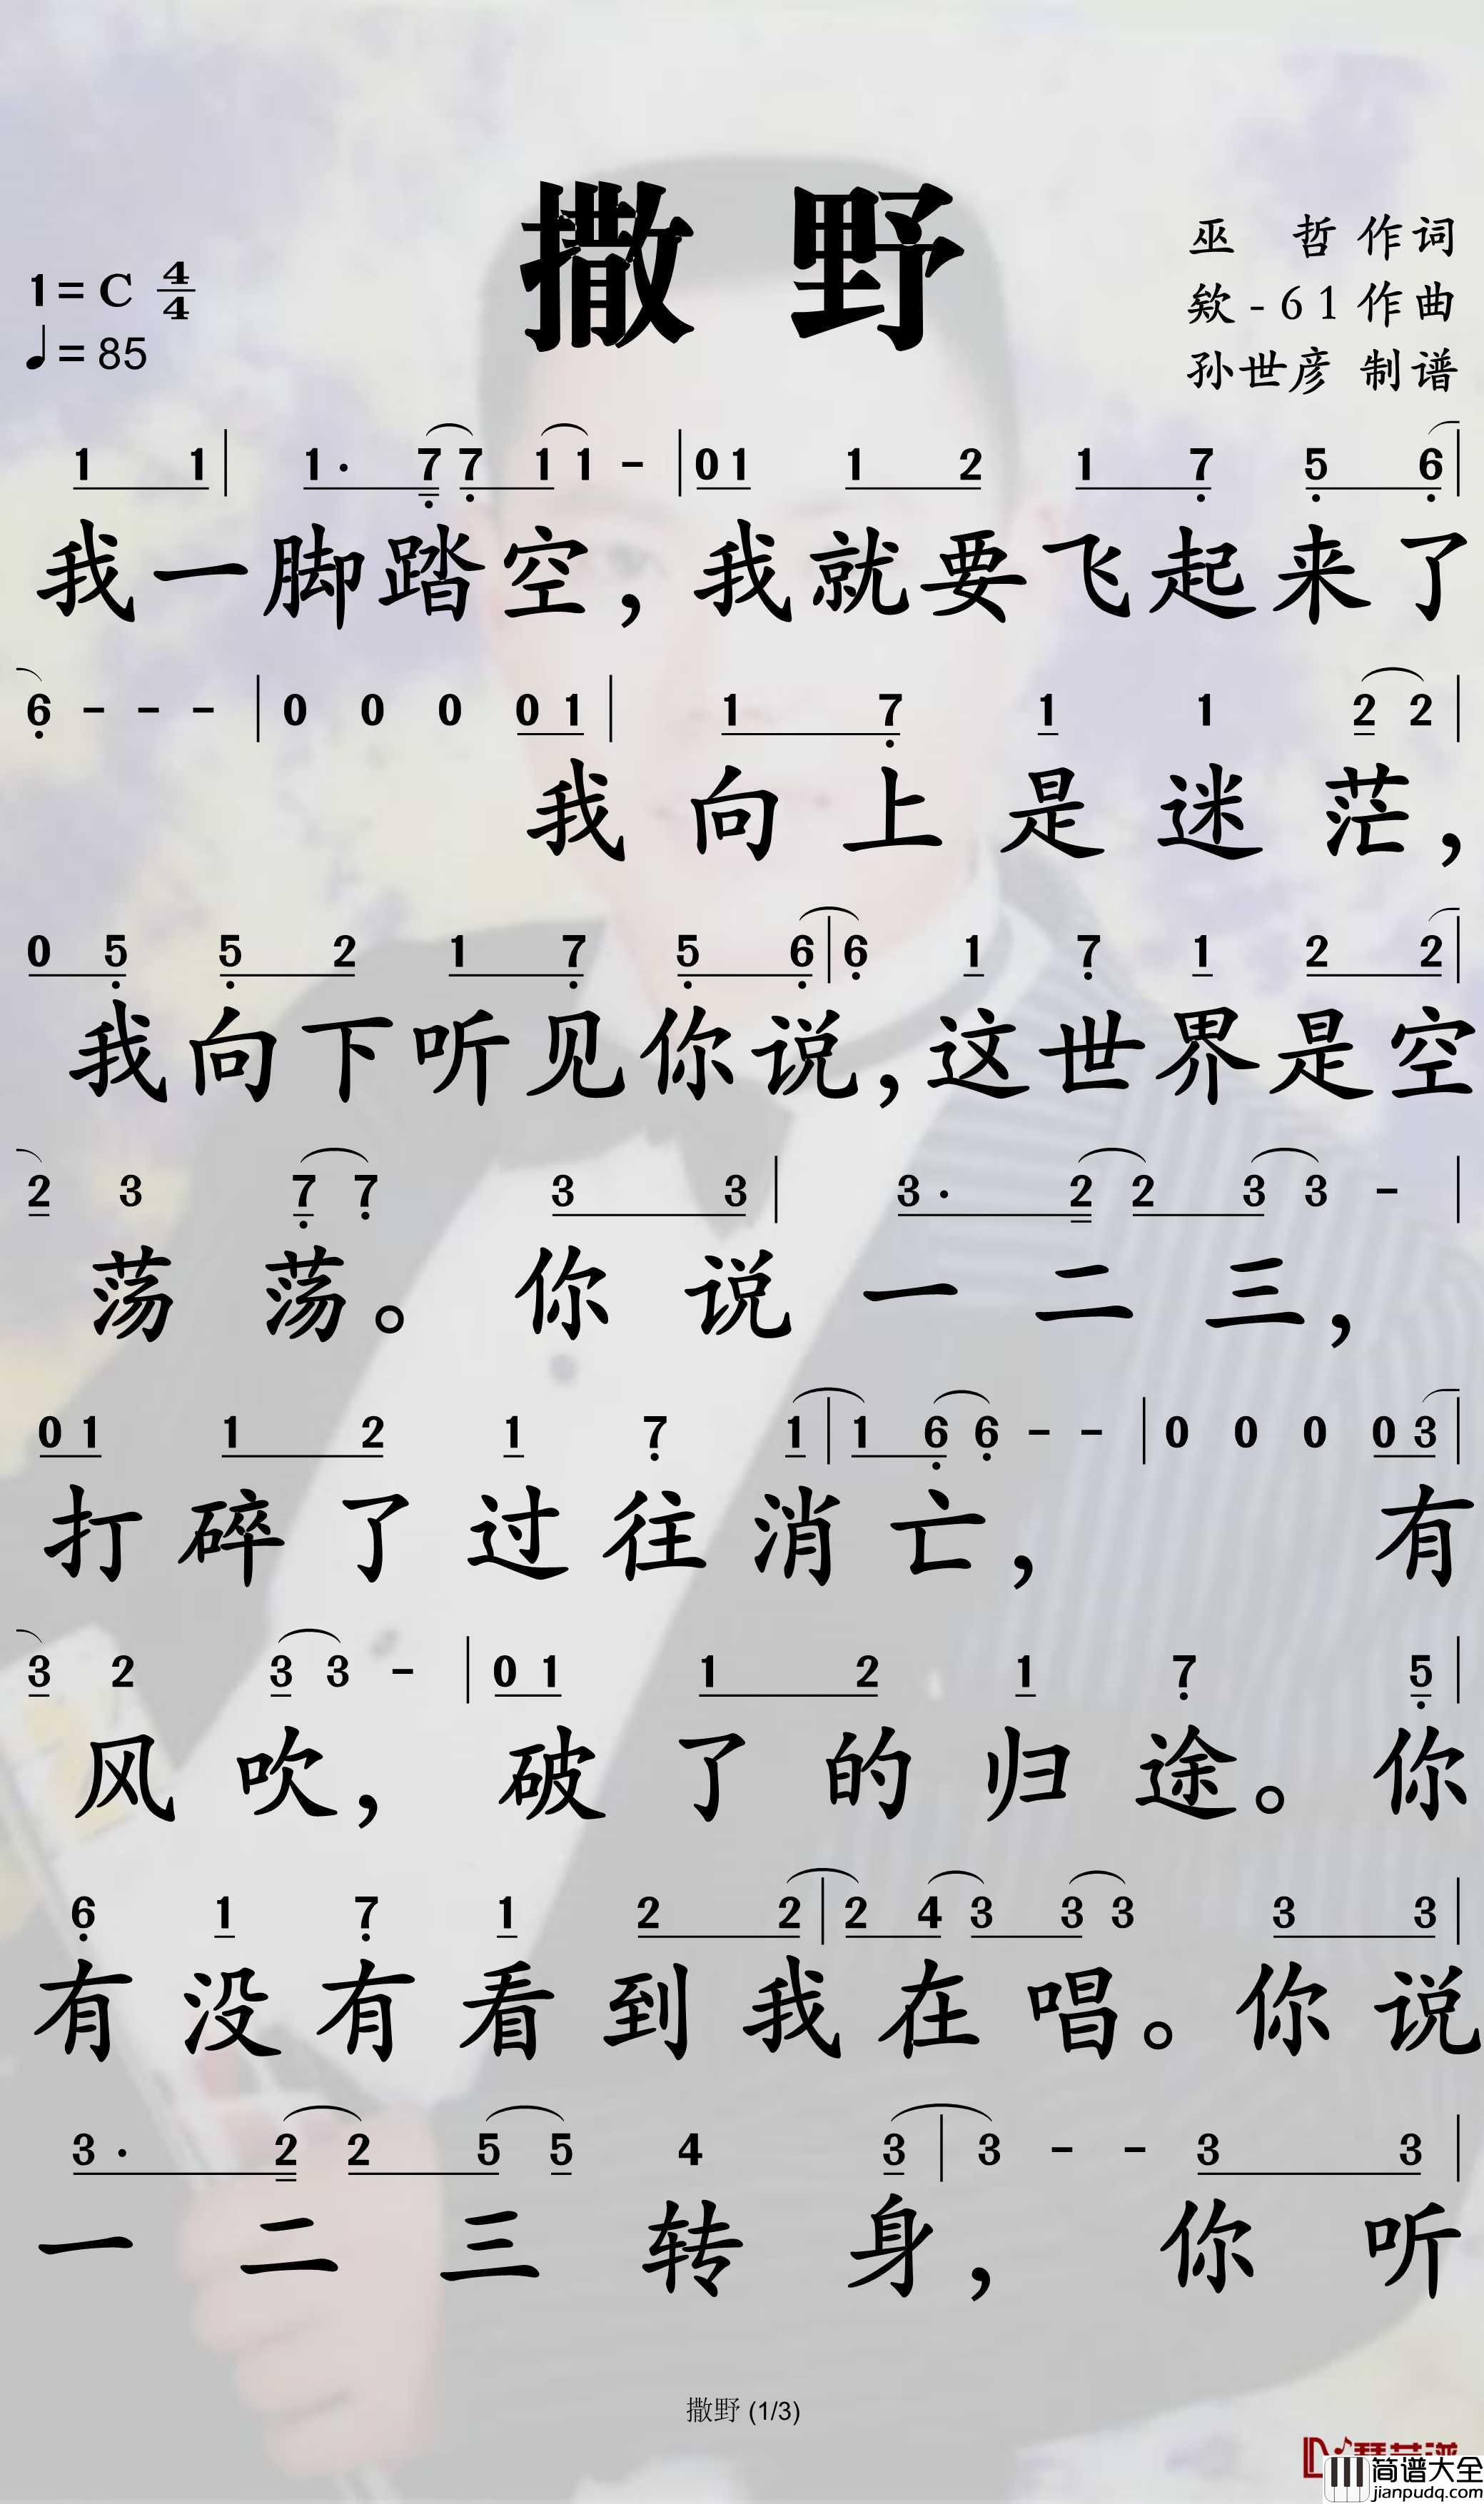 撒野
巫 哲 作词
1=C 4/4
欸-61作曲
♩=85
孙世彦 制谱
1 1 | 1· 7 7 1 1 - | 0 1 1 2 1 7 5 6 |
我一脚踏空，我就要飞起来了
6 - - - | 0 0 0 0 1 | 1 7 1 1 2 2 |
我向上是迷茫，
0 5 5 2 1 7 5 6 | 6 1 7 1 2 2 |
我向下听见你说，这世界是空
2 3 7 7 3 3 | 3· 2 2 3 3 - |
荡荡。你说一二三，
0 1 1 2 1 7 1 | 1 6 6 - - | 0 0 0 0 3 |
打碎了过往消亡，有
3 2 3 3 - | 0 1 1 2 1 7 5 |
风吹，破了的归途。你
6 1 7 1 2 2 | 2 4 3 3 3 3 3 |
有没有看到我在唱。你说
3· 2 2 5 5 4 3 | 3 - - 3 3 |
一二三转身，你听
撒野 (1/3)
简谱大全
jianpudq.com